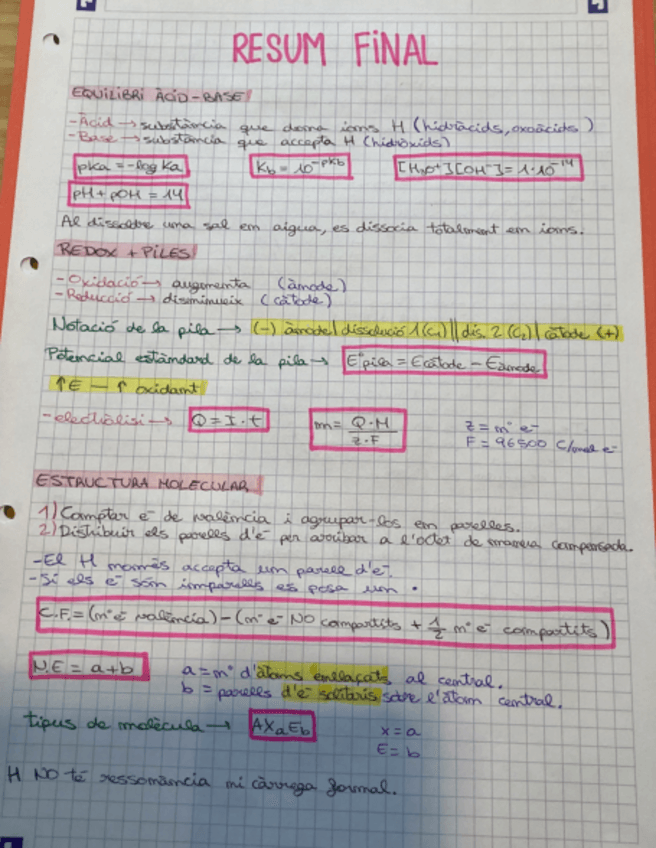 RESUM FINAL
EQUILIBRI ÀCID-BASE
-Àcid → substància que dona ions H (hidràcids, oxoàcids)
-Base → substància que accepta H (hidròxids)
pKa = -log Ka
Kb = 10^-pKb
[H3O+][OH-] = 1·10^-14
pH + pOH = 14
Al dissoldre una sal em aigua, es dissocia totalment em ions.
REDOX + PILES
-Oxidació → augmenta (ànode)
-Reducció → disminueix (càtode)
Notació de la pila → (-) ànode | dissolució 1 (C1) || dis. 2 (C2) | càtode (+)
Potencial estàndard de la pila → E°pila = Ecàtode - Eànode
↑E — ↑ oxidant
-electròlisi → Q = I·t
m = Q·M / z·F
z = nº e-
F = 96500 C/mol e-
ESTRUCTURA MOLECULAR
1) Comptar e- de valència i agrupar-los em parelles.
2) Distribuir els parells d'e- per arribar a l'octet de manera compensada.
-El H només accepta un parell d'e-.
-Si els e- són imparells es posa un •
C.F. = (nº e- valència) - (nº e- NO compartits + 1/2 nº e- compartits)
N.E = a+b
a = nº d'àtoms enllaçats al central.
b = parelles d'e- solitaris sobre l'àtom central.
tipus de molècula → AXaEb
x = a
E = b
H NO té ressonància ni càrrega formal.